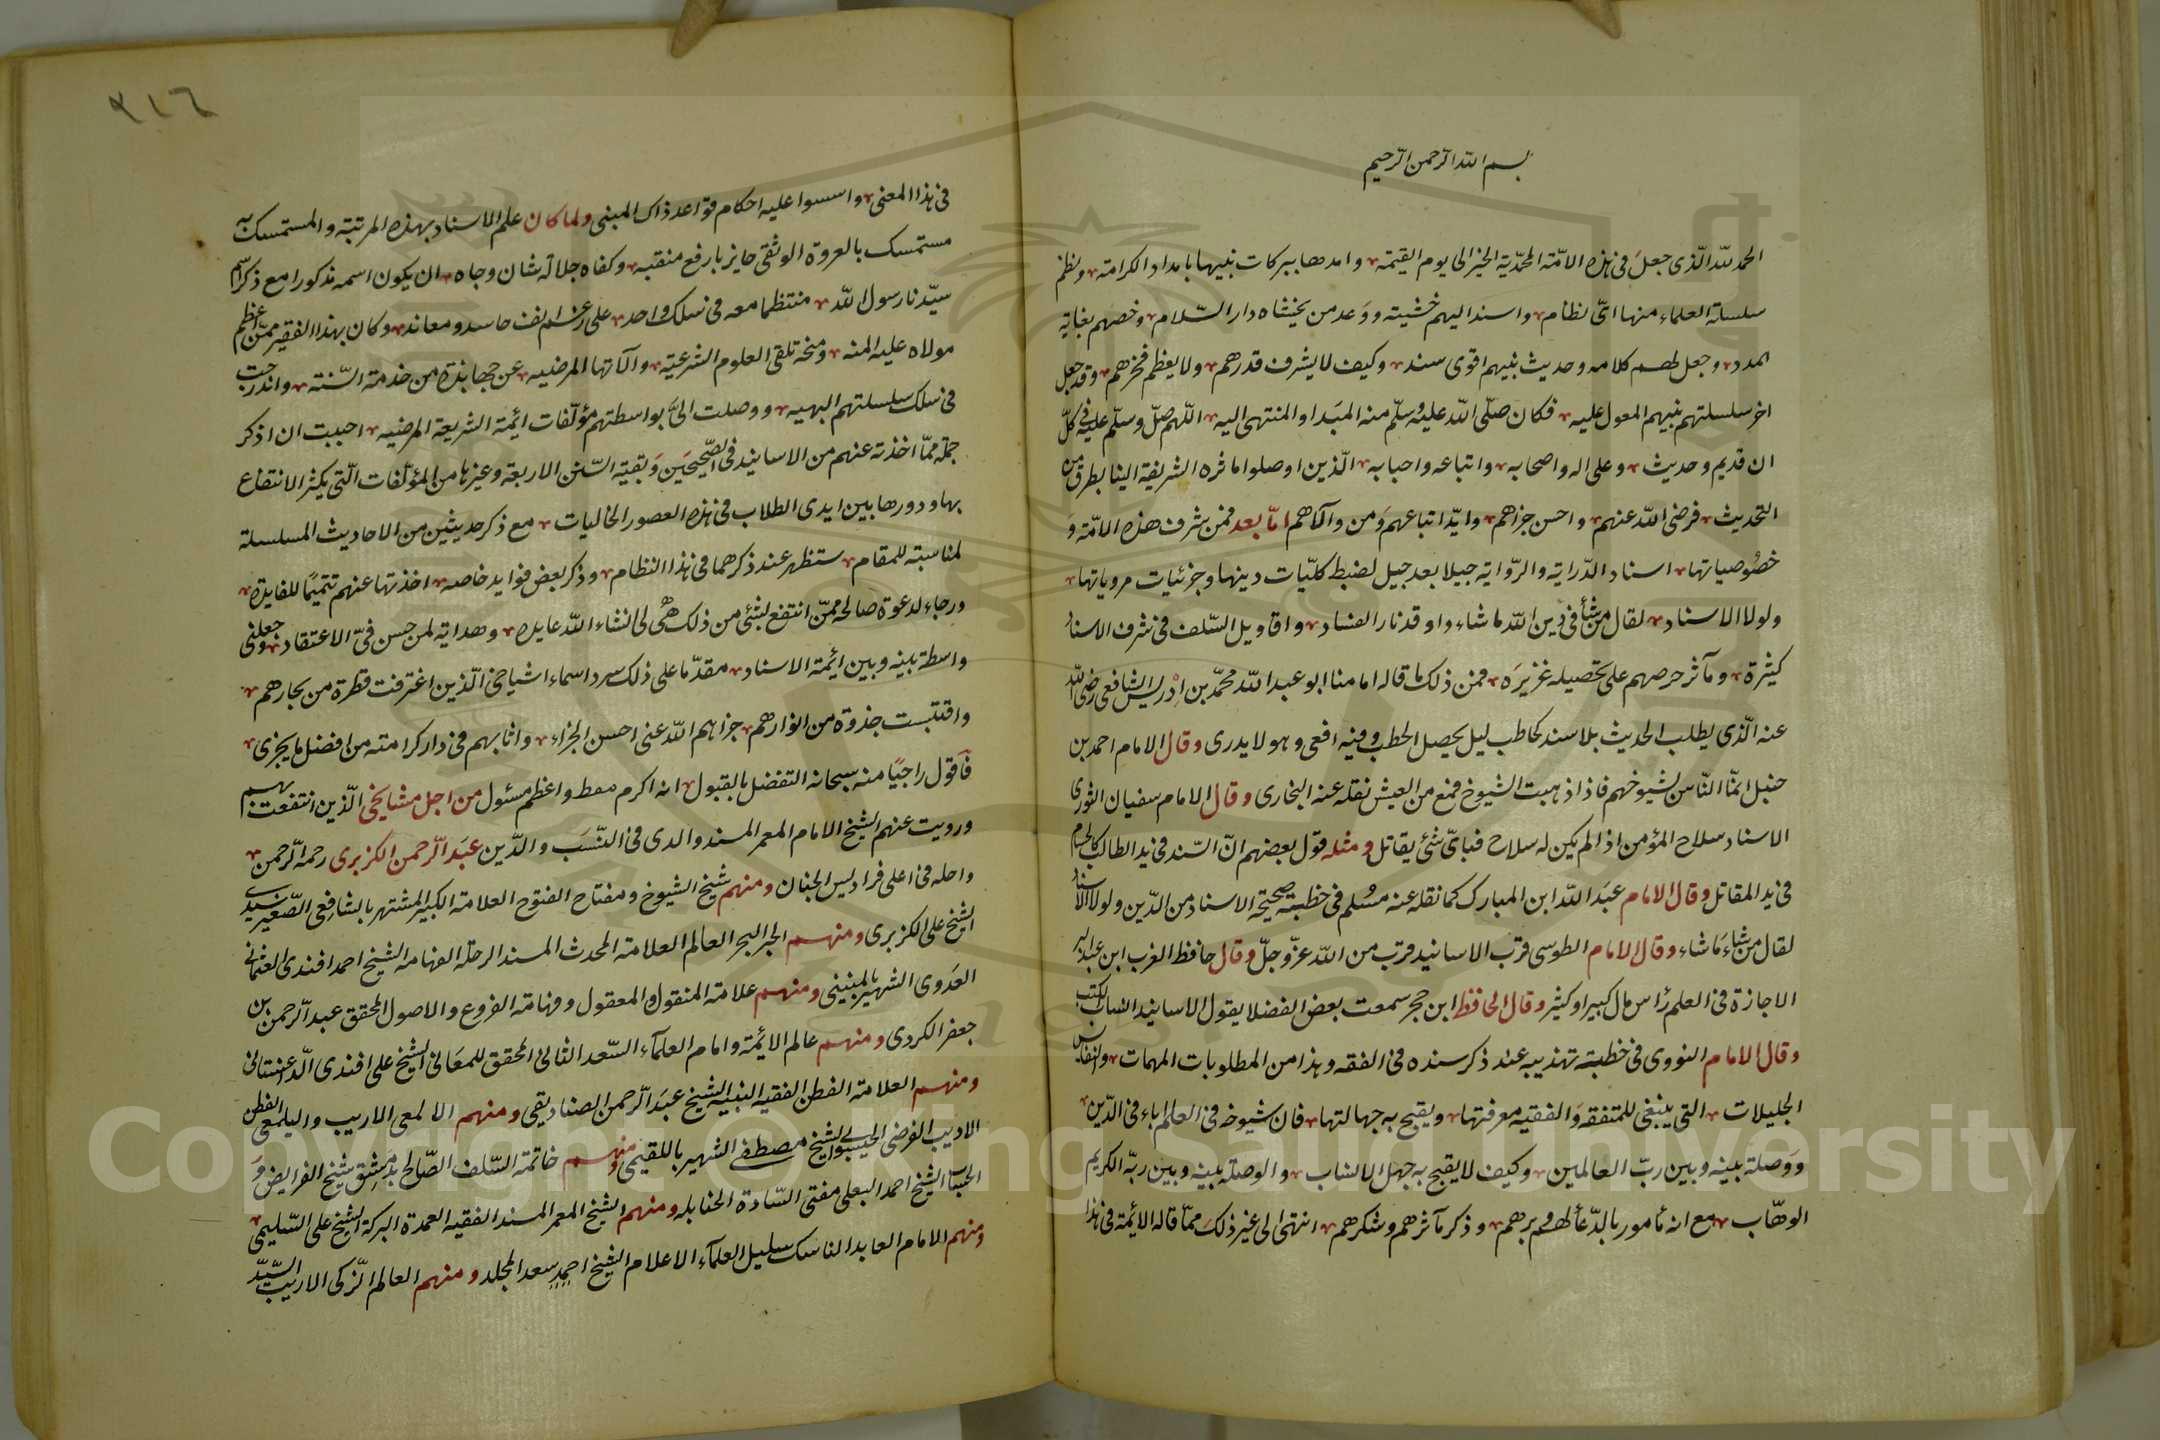 بسم الله الرحمن الرحيم
الحمد لله الذى جعل فى هذه الامة المحمدية الخير الى يوم القيمة وامدها ببركات نبيها بامداد الكرامة ونظم
سلسلة العلماء منها اتى نظام واسند اليهم خشيته ووعد من يخشاه دار السلام وخصهم بغاية
المدد وجعل لهم كلامه وحديث نبيهم اقوى سند وكيف لا يشرف قدرهم ولا يعظم فخرهم وقد جعل
اخر سلسلتهم نبيهم المعول عليه فكان صلى الله عليه وسلم منه المبدا والمنتهى اليه اللهم صل وسلم عليه فى كل
ان قديم وحديث وعلى اله واصحابه واتباعه واحبابه الذين اوصلوا ماثره الشريفة الينا بطرق من
التحديث فرضى الله عنهم واحسن جزاهم وايد اتباعهم ومن والاهم اما بعد فمن شرف هذه الامة و
خصوصياتها اسناد الدراية والرواية جيلا بعد جيل لضبط كليات دينها وجزئيات مروياتها
ولولا الاسناد لقال من شأ فى دين الله ما شاء واوقد نار الفساد واقاويل السلف فى شرف الاسناد
كثيرة ومآثر حرصهم على تحصيله غزيره فمن ذلك ما قاله امامنا ابو عبد الله محمد بن ادريس الشافعى رضى الله
عنه الذى يطلب الحديث بلا سند كحاطب ليل يحصل الحطب وفيه افعى وهو لا يدرى وقال الامام احمد بن
حنبل انما الناس بشيوخهم فاذا ذهبت الشيوخ فمع من العيش نقله عنه البخارى وقال الامام سفيان الثورى
الاسناد سلاح المؤمن اذا لم يكن له سلاح فبأى شئ يقاتل ومثله قول بعضهم ان السند فى يد الطالب كالحسام
فى يد المقاتل وقال الامام عبد الله ابن المبارك كما نقله عنه مسلم فى خطبة صحيحة الاسناد من الدين ولولا الاسناد
لقال من شاء ما شاء وقال الامام الطوسى قرب الاسانيد قرب من الله عز وجل وقال حافظ الغرب ابن عبد البر
الاجازة فى العلم رأس مال كبير او كثير وقال الحافظ ابن حجر سمعت بعض الفضلا يقول الاسانيد انساب الكتب
وقال الامام النووى فى خطبة تهذيبه عند ذكر سنده فى الفقه وهذا من المطلوبات المهمات والنفايس
الجليلات التى ينبغى للمتفقه والفقيه معرفتها ويقبح به جهالتها فان شيوخه فى العلم اباء فى الدين
ووصلة بينه وبين رب العالمين وكيف لا يقبح به جهل الانساب والوصلة بينه وبين ربه الكريم
الوهاب مع انه مأمور بالدعأ لهم وبرهم وذكر مآثرهم وشكرهم انتهى الى غير ذلك مما قاله الائمة فى هذا
٢١٦
فى هذا المعنى واسسوا عليه احكام قواعد ذاك المبنى ولما كان علم الاسناد بهذه المرتبة والمستمسك به
مستمسك بالعروة الوثقى حايز بارفع منقبه وكفاه جلالة شان وجاه ان يكون اسمه مذكورا مع ذكر اسم
سيدنا رسول الله منتظما معه فى سلك واحد على رغم انف حاسد ومعاند وكان بهذا الفقير ممن اعظم
مولاه عليه المنه ومنحه تلقى العلوم الشرعية والآتها المرضيه عن جهابذة من خدمة السنة واندرجت
فى سلك سلسلتهم البهيه ووصلت الى بواسطتهم مؤلفات ائمة الشريعة المرضيه احببت ان اذكر
جملة مما اخذته عنهم من الاسانيد فى الصحيحين وبقية السنن الاربعة وغيرها من المؤلفات التى يكثر الانتفاع
بها ودورها بين ايدى الطلاب فى هذه العصور الخاليات مع ذكر حديثين من الاحاديث المسلسلة
لمناسبة للمقام ستظهر عند ذكرهما فى هذا النظام وذكر بعض فوايد خاصه اخذتها عنهم تتميما للفايدة
ورجاء لدعوة صالحه ممن انتفع بشئ من ذلك هى لى انشاء الله عايده وهداية لمن حسن فى الاعتقاد وجعلنى
واسطة بينه وبين ائمة الاسناد مقدما على ذلك سرد اسماء اشياخى الذين اغترفت قطرة من بحارهم
واقتبست جذوة من انوارهم جزاهم الله عنى احسن الجزاء واثابهم فى دار كرامته من افضل ما يجزى
فاقول راجيا منه سبحانه التفضل بالقبول انه اكرم معط واعظم مسئول من اجل مشايخى الذين انتفعت بهم
ورويت عنهم الشيخ الامام المعمر المسند والدى فى النسب والدين عبد الرحمن الكزبرى رحمه الرحمن
واحله فى اعلى فراديس الجنان ومنهم شيخ الشيوخ ومفتاح الفتوح العلامة الكبير المشتهر بالشافعى الصغير سيدى
الشيخ على الكزبرى ومنهم الحبر البحر العالم العلامة المحدث المسند الرحلة الفهامه الشيخ احمد افندى العثمانى
العدوى الشهير بالمنينى ومنهم علامة المنقول والمعقول وفهامة الفروع والاصول المحقق عبد الرحمن بن
جعفر الكردى ومنهم عالم الائمة وامام العلمآء السعد الثانى المحقق للمعانى الشيخ على افندى الداغستانى
ومنهم العلامة الفطن الفقيه النبيه الشيخ عبد الرحمن الصناديقى ومنهم الالمعى الاريب واليلمعى الفطن
الاديب الفرضى الحيسوبى الشيخ مصطفى الشهير باللقيمى ومنهم خاتمة السلف الصالح بدمشق شيخ الفرايض و
الحساب الشيخ احمد البعلى مفتى السادة الحنابله ومنهم الشيخ المعمر المسند الفقيه العمدة البركة الشيخ على السليمى
ومنهم الامام العابد الناسك سليل العلمآء الاعلام الشيخ احمد سعد المجلد ومنهم العالم الزكى الاريب السيد
Copyright © King Saud University